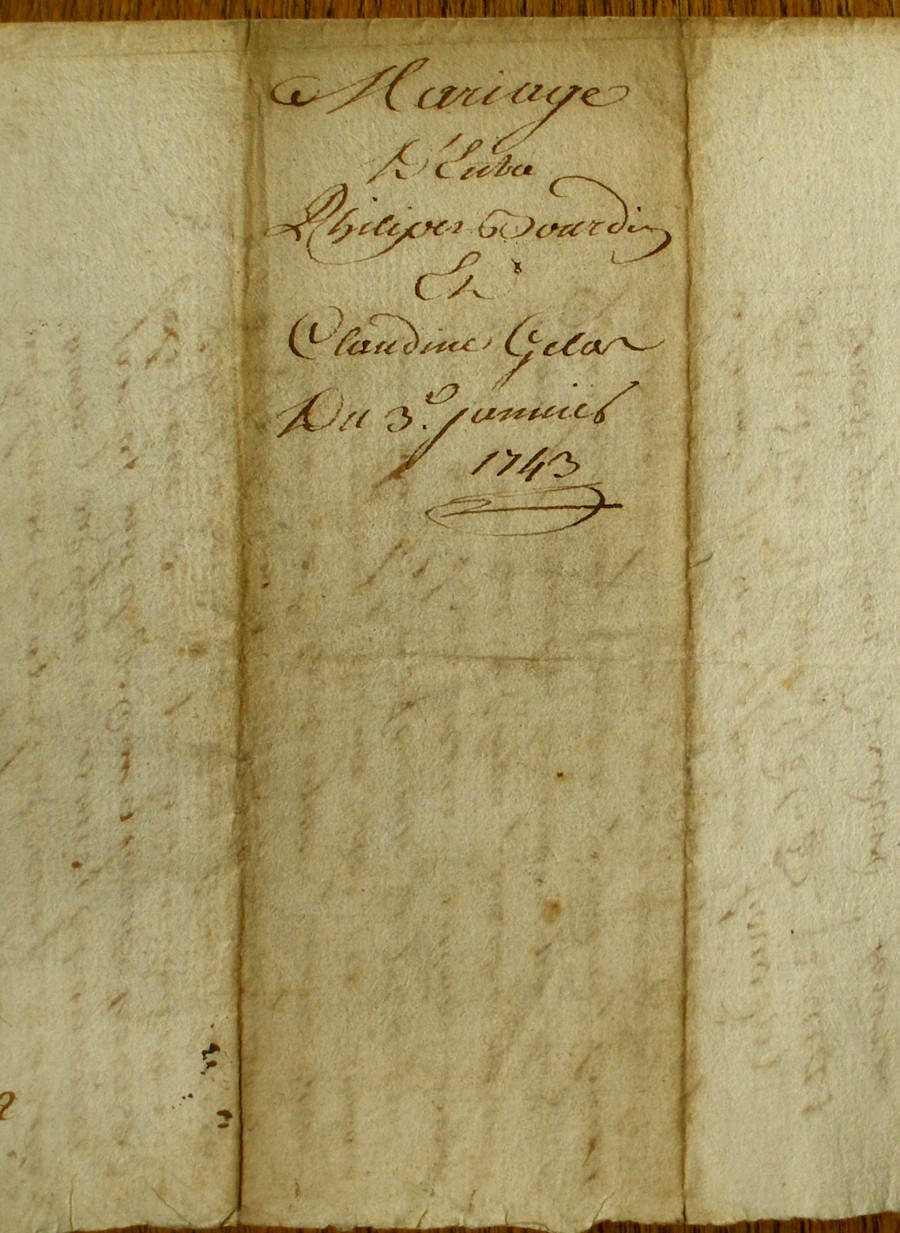 Mariage
D'Entre
Philiper Bourdin
Et
Claudine Gelas
Du 3.e janvier
1743